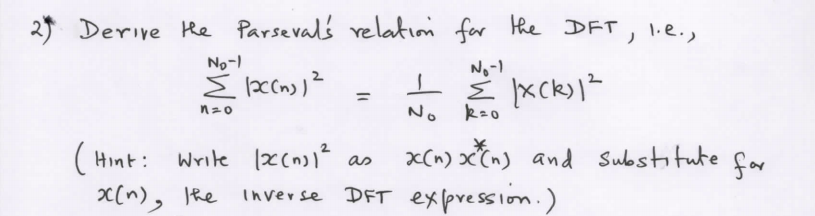 2) Derive the Parseval's relation for the DFT, i.e.,
N₀-1 ∑ n=0 |x(n)|² = 1/N₀ N₀-1 ∑ k=0 |X(k)|²
(Hint: Write |x(n)|² as x(n) x*(n) and substitute for
x(n), the inverse DFT expression.)